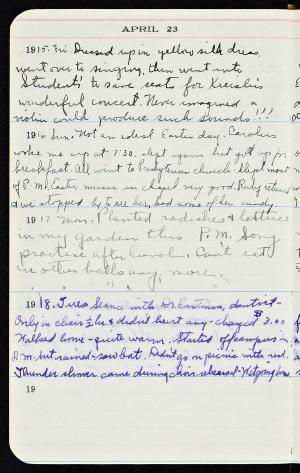 APRIL 23
1915. Fri. Dressed up in yellow silk dress,
went over to singing, then went into
Students' to save seats for Kreisler's
wonderful concert. Never imagined a
violin could produce such sounds!!!
1916. Sun. Not an ideal Easter day. Carolus
woke me up at 7:30. slept again but got up for
breakfast. All went to Presbyterian church. Slept most
of P.M. Easter music in chapel very good. Ruby returned
& we stopped by to see her, had some of her candy.
1917 Mon. Planted radishes & lettuce
in my garden this P.M. Song
practice after lunch. Can't eat
in other halls any more.
1918. Tues Seance with Dr. Eastman, dentist-
Only in chair ½ hr & didn't hurt any - charged $3.00
Walked home - quite warm. Started off campus in
P.M. but rained - saw bat. Didn't go on picnic with rest.
Thunder shower came during choir rehearsal -
19